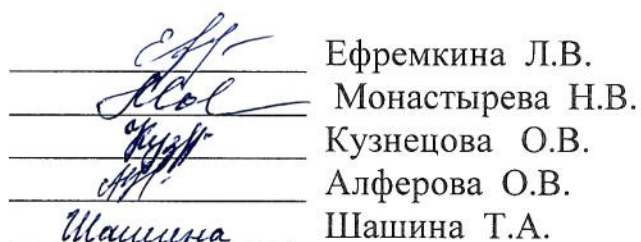 Ефремкина Л.В.
Монастырева Н.В.
Кузнецова О.В.
Алферова О.В.
Шашина Шашина Т.А.